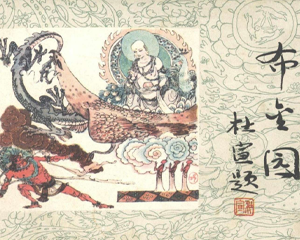 布金图
杜宣题